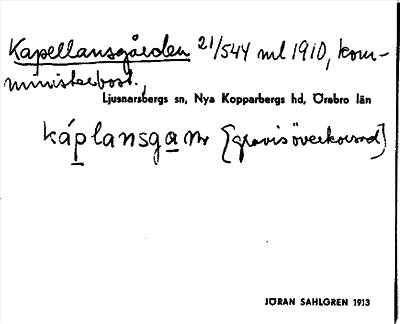 Kapellansgården 21/544 ml 1910, kom-
ministerbost.,
Ljusnarsbergs sn, Nya Kopparbergs hd, Örebro län
káplansga
JÖRAN SAHLGREN 1913